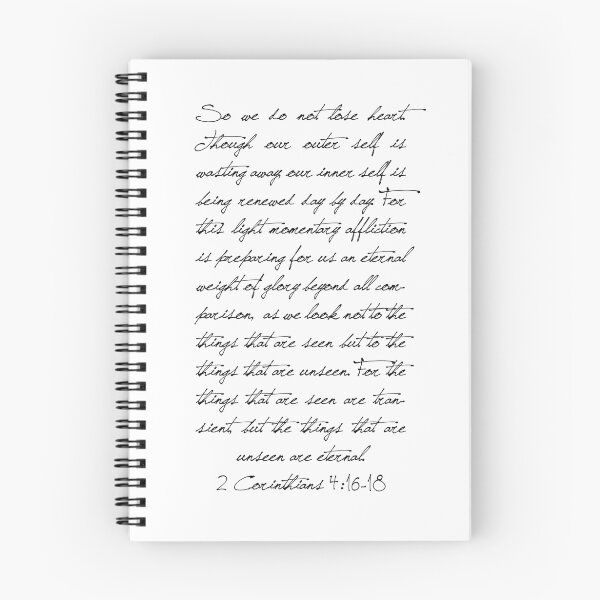 So we do not lose heart.
Though our outer self is
wasting away, our inner self is
being renewed day by day. For
this light momentary affliction
is preparing for us an eternal
weight of glory beyond all com-
parison, as we look not to the
things that are seen but to the
things that are unseen. For the
things that are seen are tran-
sient, but the things that are
unseen are eternal.
2 Corinthians 4:16-18